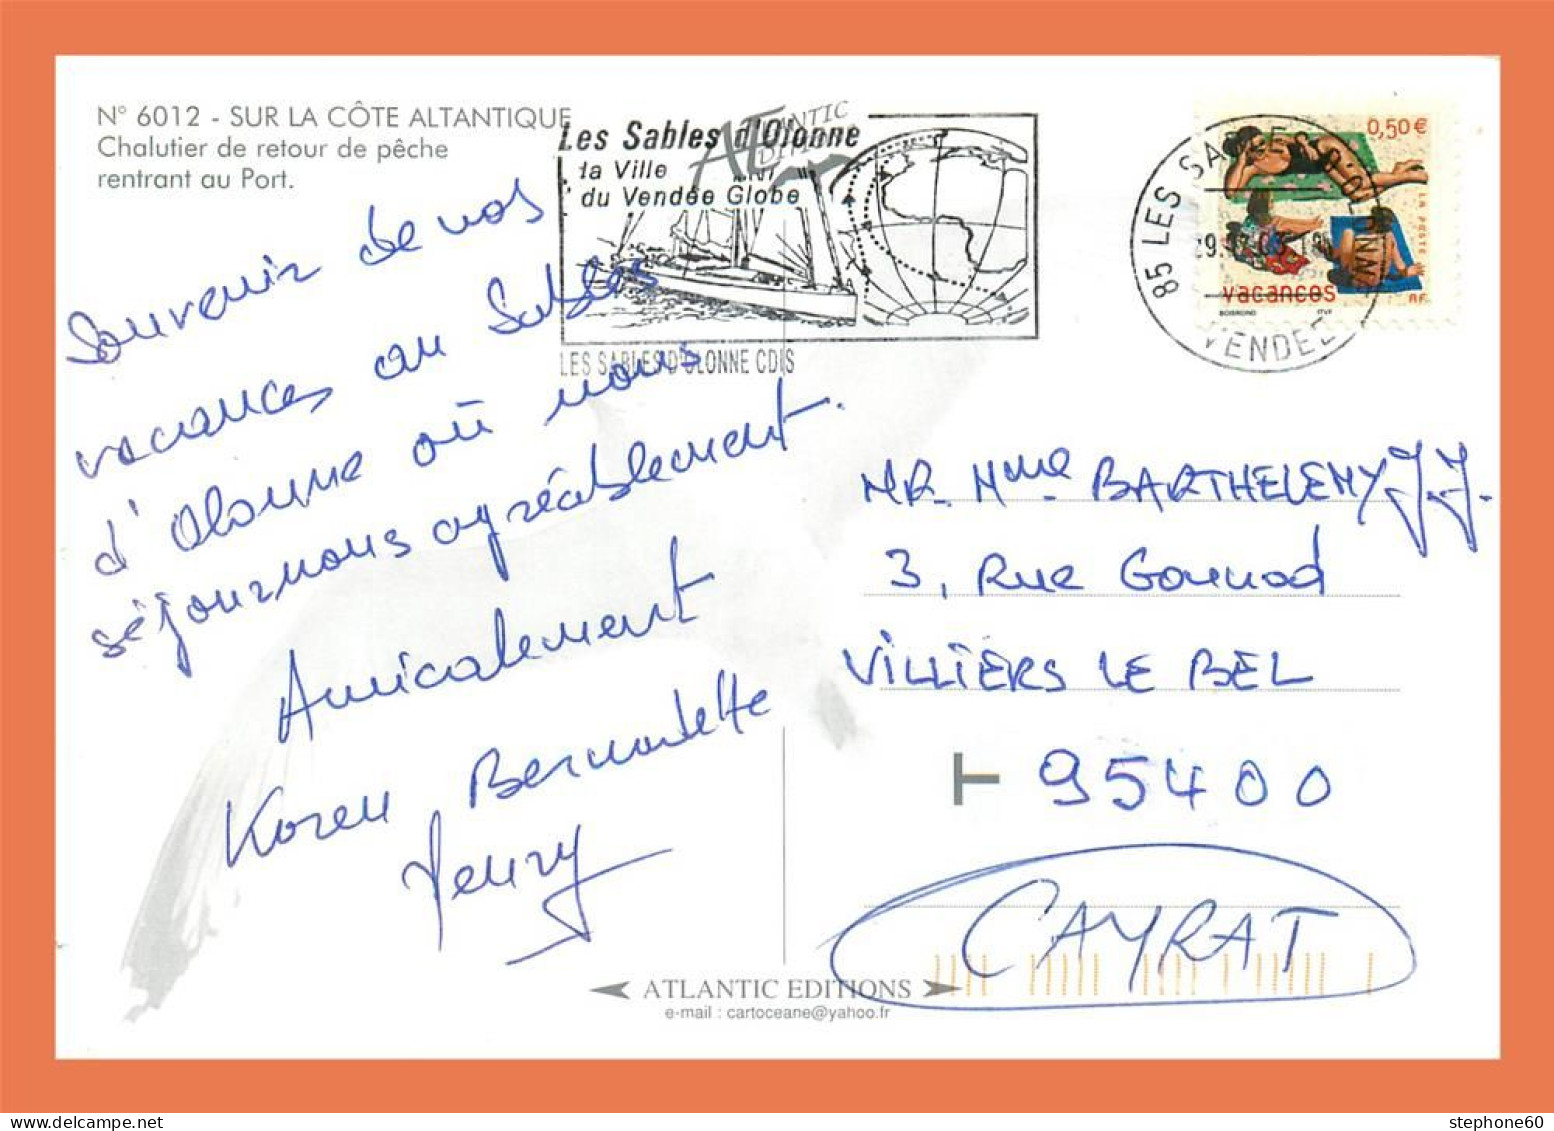 N° 6012 - SUR LA CÔTE ALTANTIQUE
Chalutier de retour de pêche
rentrant au Port.
ATLANTIC
Les Sables d'Olonne
la Ville
du Vendée Globe
LES SABLES D'OLONNE CDIS
85 LES SABLES D'OLONNE
VENDEE
0,50 €
LA POSTE
vacances
RF
BOISROND
ITVF
Souvenir de nos
vacances au Sables
d'Olonne où nous
séjournons agréablement.
Amicalement
Koren Bernadette
Henry
MR. Mme BARTHELEMY J.J.
3, Rue Gounod
VILLIERS LE BEL
95400
CAYRAT
ATLANTIC EDITIONS
e-mail : cartoceane@yahoo.fr
stephone60